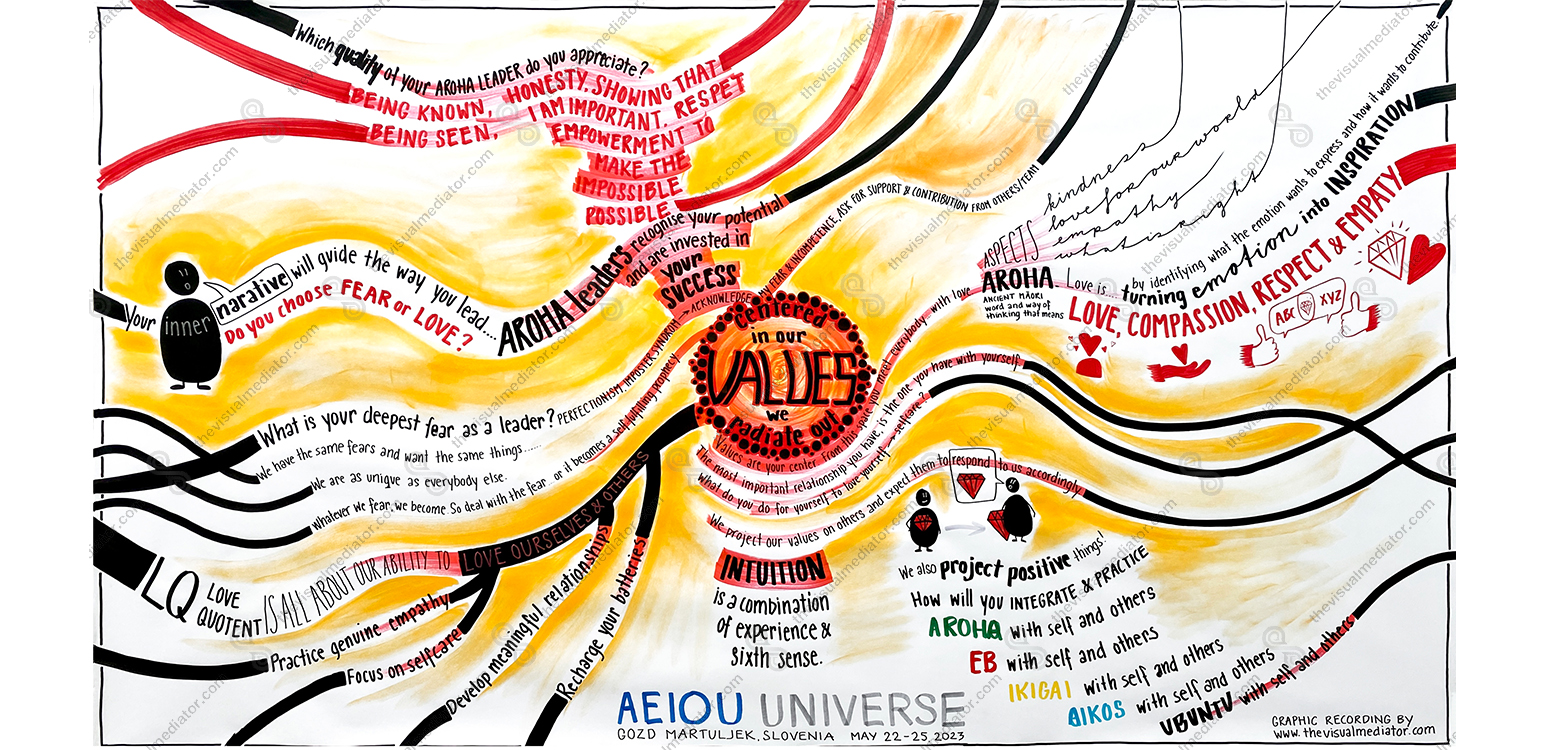 Which quality of your AROHA LEADER do you appreciate?
BEING KNOWN, HONESTY. SHOWING THAT
BEING SEEN, I AM IMPORTANT. RESPET
EMPOWERMENT TO
MAKE THE
IMPOSSIBLE
POSSIBLE
Your inner narative will guide the way you lead...
Do you choose FEAR or LOVE?
AROHA leaders recognise your potential
and are invested in
your
SUCCESS
What is your deepest fear as a leader? PERFECTIONISM, IMPOSTER SYNDROM → ACKNOWLEDGE MY FEAR & INCOMPETENCE, ASK FOR SUPPORT & CONTRIBUTION FROM OTHERS/TEAM
We have the same fears and want the same things......
We are as unique as everybody else.
Whatever we fear, we become. So deal with the fear.. or it becomes a selffulfilling prophecy
centered
in our
VALUES
we
radiate out
Values are your center. From this space you meet everybody with love
The most important relationship you have, is the one you have with yourself
What do you do for yourself to love yourself → selfcare?
We project our values on others and expect them to respond to us accordingly
ASPECTS
kindness
love for our world
empathy
what is right
AROHA
ANCIENT MĀORI
word and way of
thinking that means
Love is... by identifying what the emotion wants to express and how it wants to contribute.
turning emotion into INSPIRATION
LOVE, COMPASSION, RESPECT & EMPATY
ABC XYZ
LQ LOVE
QUOTENT IS ALL ABOUT OUR ABILITY TO LOVE OURSELVES & OTHERS
Practice genuine empathy
Focus on selfcare
Develop meaningful relationships
Recharge your batteries
INTUITION
is a combination
of experience &
sixth sense.
We also project positive things!
How will you INTEGRATE & PRACTICE
AROHA with self and others
EB with self and others
IKIGAI with self and others
OIKOS with self and others
UBUNTU with self and others
AEIOU UNIVERSE
GOZD MARTULJEK, SLOVENIA MAY 22-25, 2023
GRAPHIC RECORDING BY
www.thevisualmediator.com
thevisualmediator.com